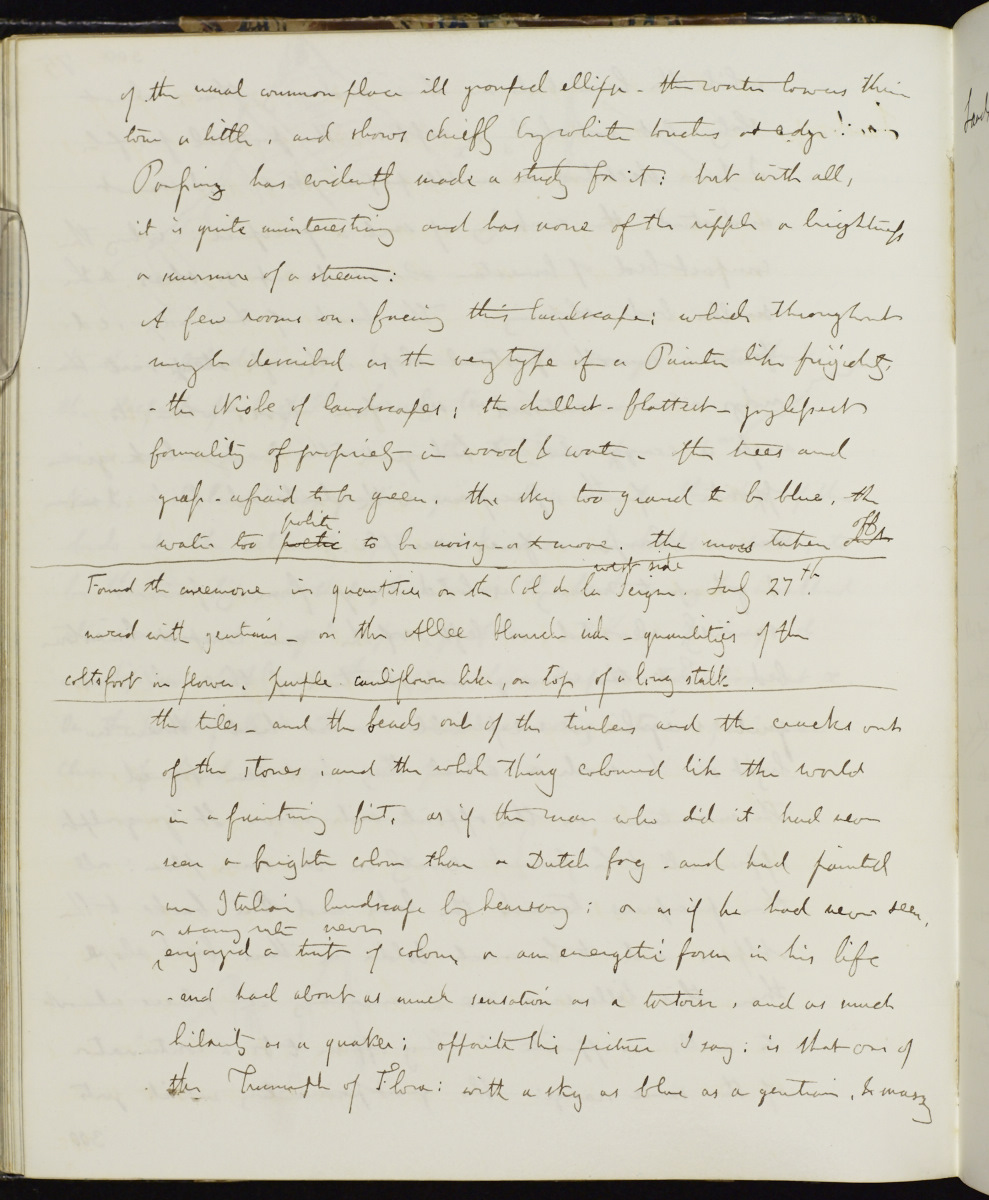 of the usual common place ill grouped ellipse - the water lowers their
tone a little, and shows chiefly by white touches at edge:
Poussin has evidently made a study for it: but with all,
it is quite uninteresting and has none of the ripple or brightness
or murmur of a stream:
A few rooms on. facing this landscape; which throughout
may be described as the very type of a Painter like frigidity,
- the Niobe of landscapes; the dullest - flattest - joylessest
formality of propriety in wood & water - the trees and
grass - afraid to be green. the sky too grand to be blue, the
polite
water too poetic to be noisy - or to move. the moss taken
west side
Found the anemone in quantities on the Col de la Seigne. July 27th.
mixed with gentians - on the Allee blanche side - quantities of the
coltsfoot in flower. purple cauliflower like, on top of a long stalk.
the tiles - and the beads out of the timbers and the cracks out
of the stones; and the whole thing coloured like the world
in a fainting fit, as if the man who did it had never
seen a brighter colour than a Dutch fog - and had painted
an Italian landscape by hearsay; or as if he had never seen,
or at any rate never
enjoyed a tint of colour, or an energetic form in his life
- and had about as much sensation as a tortoise, and as much
hilarity as a quaker; opposite this picture I say: is that one of
the Triumph of Flora: with a sky as blue as a gentian, & massy